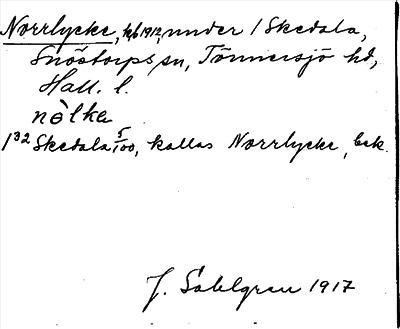 Norrlycke, hb 1912, under 1 Skedala,
Snöstorps sn, Tönnersjö hd,
Hall. l.
nòlka
1 32 Skedala 5/100, kallas Norrlycke, bek.
J. Sahlgren 1917